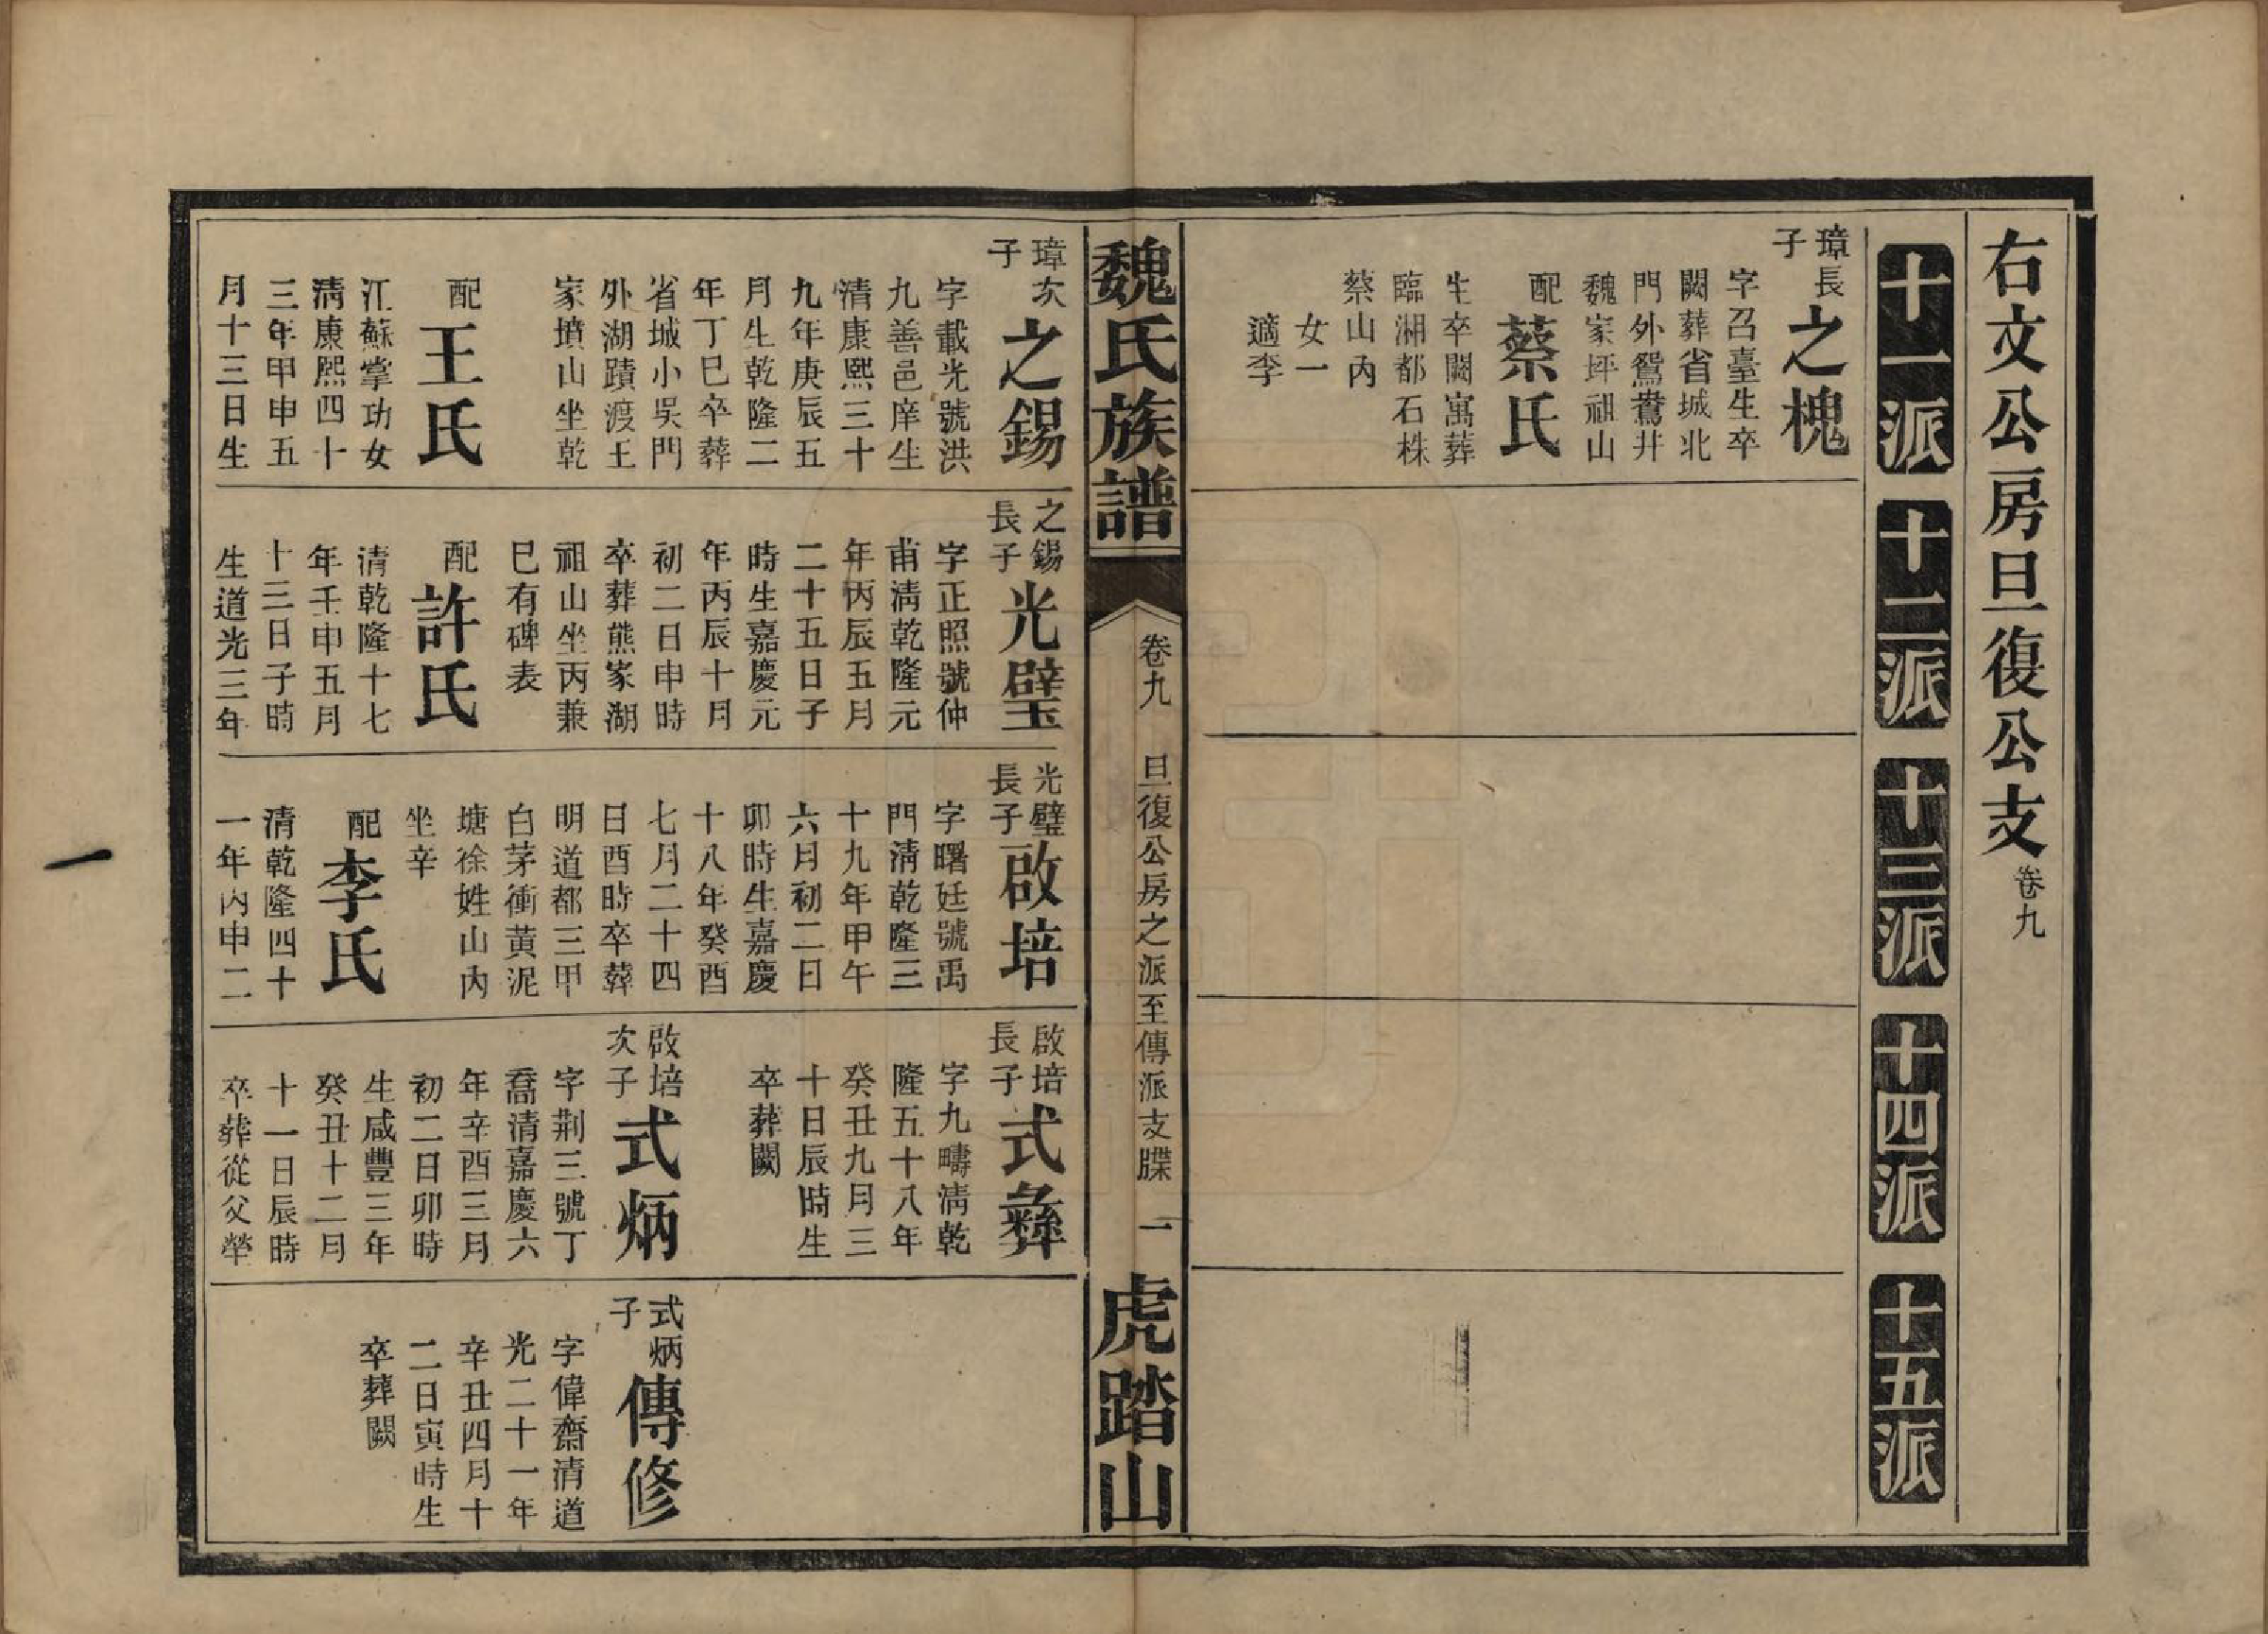 右文公房旦復公支卷九
十一派
十二派
十三派
十四派
十五派
璋長
子
之槐
字召臺生卒
闕葬省城北
門外鴛鴦井
魏家坪祖山
配
蔡氏
生卒闕寓葬
臨湘都石株
蔡山內
女一
適李
魏氏族譜
卷九
旦復公房之派至傳派支牒
一
虎踏山
璋次
子
之錫
字載光號洪
九善邑庠生
清康熙三十
九年庚辰五
月生乾隆二
年丁巳卒葬
省城小吳門
外湖蹟渡王
家墳山坐乾
配
王氏
江蘇掌功女
清康熙四十
三年甲申五
月十三日生
之錫
長子
光璧
字正照號仲
甫清乾隆元
年丙辰五月
二十五日子
時生嘉慶元
年丙辰十月
初二日申時
卒葬熊家湖
祖山坐丙兼
巳有碑表
配
許氏
清乾隆十七
年壬申五月
十三日子時
生道光三年
光璧
長子
啟培
字曙廷號禹
門清乾隆三
十九年甲午
六月初二日
卯時生嘉慶
十八年癸酉
七月二十四
日酉時卒葬
明道都三甲
白茅衝黃泥
塘徐姓山內
坐辛
配
李氏
清乾隆四十
一年丙申二
啟培
長子
式彝
字九疇清乾
隆五十八年
癸丑九月三
十日辰時生
卒葬闕
啟培
次子
式炳
字荆三號丁
喬清嘉慶六
年辛酉三月
初二日卯時
生咸豐三年
癸丑十二月
十一日辰時
卒葬從父塋
式炳
子
傳修
字偉齋清道
光二十一年
辛丑四月十
二日寅時生
卒葬闕
一